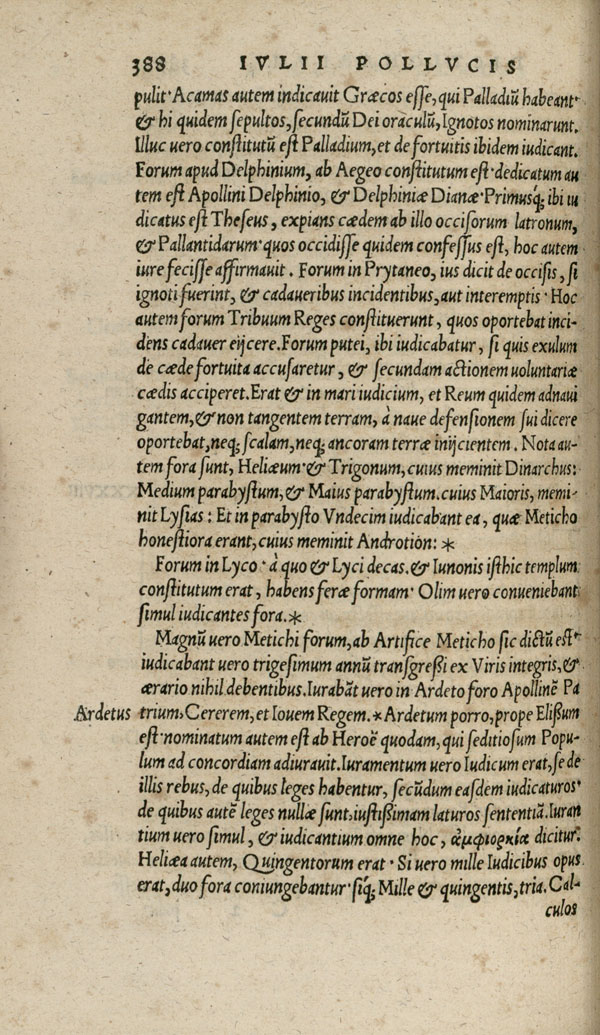 388 IVLII POLLVCIS
pulit· Acamas autem indicauit Græcos eſſe, qui Palladiũ habeant·
& hi quidem ſepultos, ſecundũ Dei oraculũ, Ignotos nominarunt.
Illuc uero conſtitutũ eſt Palladium, et de fortuitis ibidem iudicant.
Forum apud Delphinium, ab Aegeo conſtitutum eſt· dedicatum au
tem eſt Apollini Delphinio, & Delphiniæ Dianæ· Primusq́; ibi iu
dicatus eſt Theſeus, expians cædem ab illo occiſorum latronum,
& Pallantidarum· quos occidiſſe quidem confeſſus eſt, hoc autem
iure feciſſe affirmauit. Forum in Prytaneo, ius dicit de occiſis, ſi
ignoti fuerint, & cadaueribus incidentibus, aut interemptis· Hoc
autem forum Tribuum Reges conſtituerunt, quos oportebat inci-
dens cadauer eijcere. Forum putei, ibi iudicabatur, ſi quis exulum
de cæde fortuita accuſaretur, & ſecundam actionem uoluntariæ
cædis acciperet. Erat & in mari iudicium, et Reum quidem adnaui
gantem, & non tangentem terram, à naue defenſionem ſui dicere
oportebat, neq; ſcalam, neq; ancoram terræ inijcientem. Nota au-
tem fora ſunt, Heliæum· & Trigonum, cuius meminit Dinarchus:
Medium parabyſtum, & Maius parabyſtum. cuius Maioris, memi-
nit Lyſias: Et in parabyſto Vndecim iudicabant ea, quæ Meticho
honeſtiora erant, cuius meminit Androtion: *
Forum in Lyco· à quo & Lyci decas. & Iunonis iſthic templum
conſtitutum erat, habens feræ formam· Olim uero conueniebant
ſimul iudicantes fora. *
Magnũ uero Metichi forum, ab Artifice Meticho ſic dictũ eſt·
iudicabant uero trigeſimum annũ tranſgreßi ex Viris integris, &
ærario nihil debentibus. Iurabãt uero in Ardeto foro Apollinẽ Pa
Ardetus trium, Cererem, et Iouem Regem. * Ardetum porro, prope Elißum
eſt· nominatum autem eſt ab Heroẽ quodam, qui ſeditioſum Popu-
lum ad concordiam adiurauit. Iuramentum uero Iudicum erat, ſe de
illis rebus, de quibus leges habentur, ſecũdum eaſdem iudicaturos·
de quibus autẽ leges nullæ ſunt, iuſtißimam laturos ſententiã. Iuran
tium uero ſimul, & iudicantium omne hoc, ἀμφιορκία dicitur.
Heliæa autem, Quingentorum erat· Si uero mille Iudicibus opus
erat, duo fora coniungebantur· ſiq́; Mille & quingentis, tria. Cal-
culos